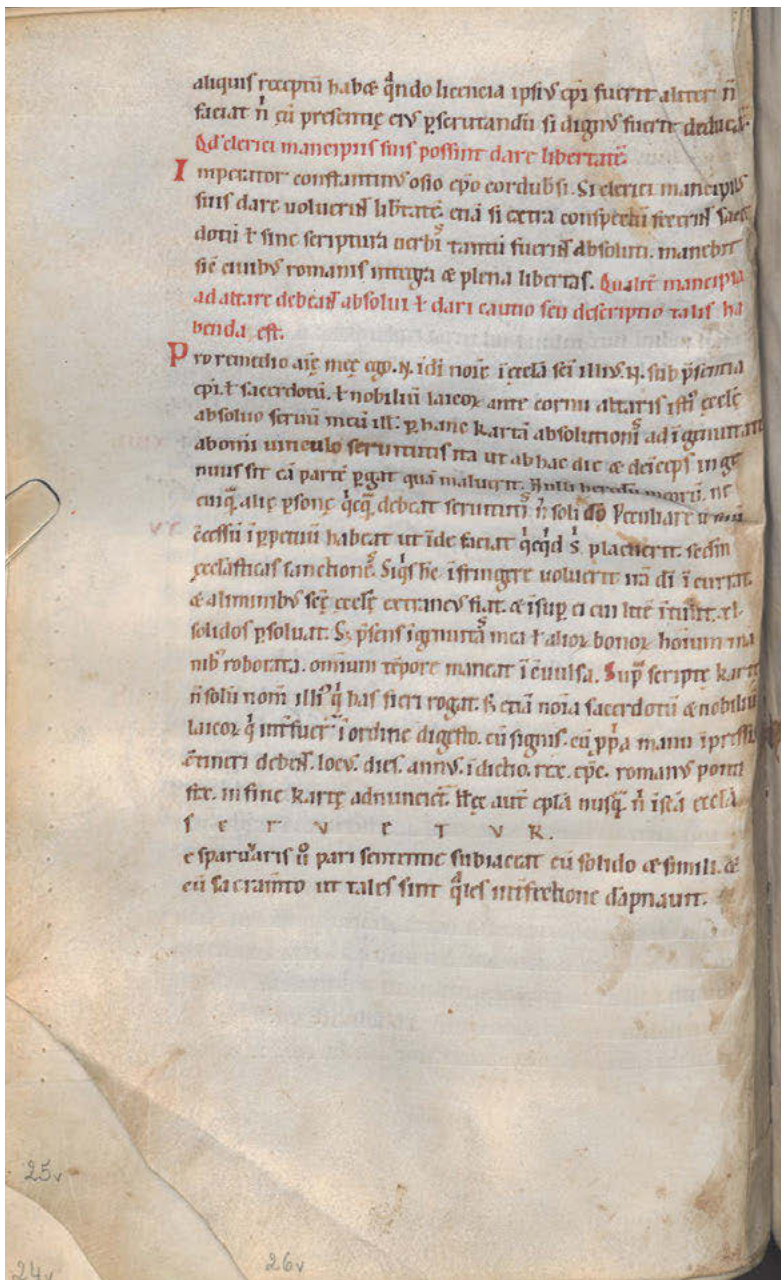 aliquis receptū habeæ q̄ndo licencia ipsiꝰ ep̄i fuerit aliter n̄
faciat n̄ cū presentię eiꝰ p̱scrutandū si dignꝰ fuerit deducat̄.
Qd' clerici mancipiis suis possint dare libertatē.
Imperator constantinꝰ osio ep̄o cordubsi. Si clerici mancipiis
suis dare uoluerīt lib̄tatē. etiā si extra conspectū fecerīt sacer
dotū ł sine scriptura uerbis tantū fuerīt absoluti. manebit
sic̄ ciuibꝰ romanis integra æ plena libertas. Qualit̄ mancipia
ad altare debeāt absolui ł dari cautio seu descriptio talis ha
benda est.
Pro remedio aīę meę ego .N. ī di noīe ī ęcclā sc̄i illiꝰ .N. sub p̄sentia
ep̄i. ł sacerdotū. ł nobiliū laicoꝝ ante cornu altaris istiꝰ ęcclę
absoluo seruū meū ill̄. p̱ hanc kartā absolutionis ad īgenuitatē
ab om̄i uinculo seruitutis ita ut ab hac die æ deīceps inge
nuus sit eā partē p̱gat quā maluerit. Nulli
cuiq̄. alię p̱sonę q̄cq̄ debeat seruitutis n̄ soli dō Peculiare
c̄cessū ī p̱petuū habeat ut īde faciat q̄cq̄d s̄ placuerit. sedm̄
ęcclasticas sanctiones. Siq̄s hc̄ īfringere uoluerit irā di ī currat.
æ a liminibꝰ scę ecclę extraneꝰ fiat. æ īsup̱ ei cui litē ītulit. xl.
solidos p̱soluat. Sꝫ p̄sens īgenuitas mea ł alioꝝ bonoꝝ hoīum ma
nibꝰ roborata. omnium tēpore maneat ī c̄uulsa. Sup̄ scripte kartę
n̄ solū nom̄ illiꝰ q̄ has fieri rogat. sꝫ etiā noīa sacerdotū æ nobiliū
laicoꝝ q̄ int̄fuer̄ ī ordine digesto. cū signis. cū pp̄a manu īpressis
c̄tineri debēt. locꝰ. dies. annꝰ. īdictio. rex. ep̄c. romanꝰ ponti
fex. in fine kartę adnuncięt. Hęc aut̄ ep̄la nusq̄ n̄ ī sc̄ā ęcclā
s e r v e t v R.
e n̄ pari sententię subiaceat cū solido æ simili. æ
cū sacram̄to ut tales sint q̄les